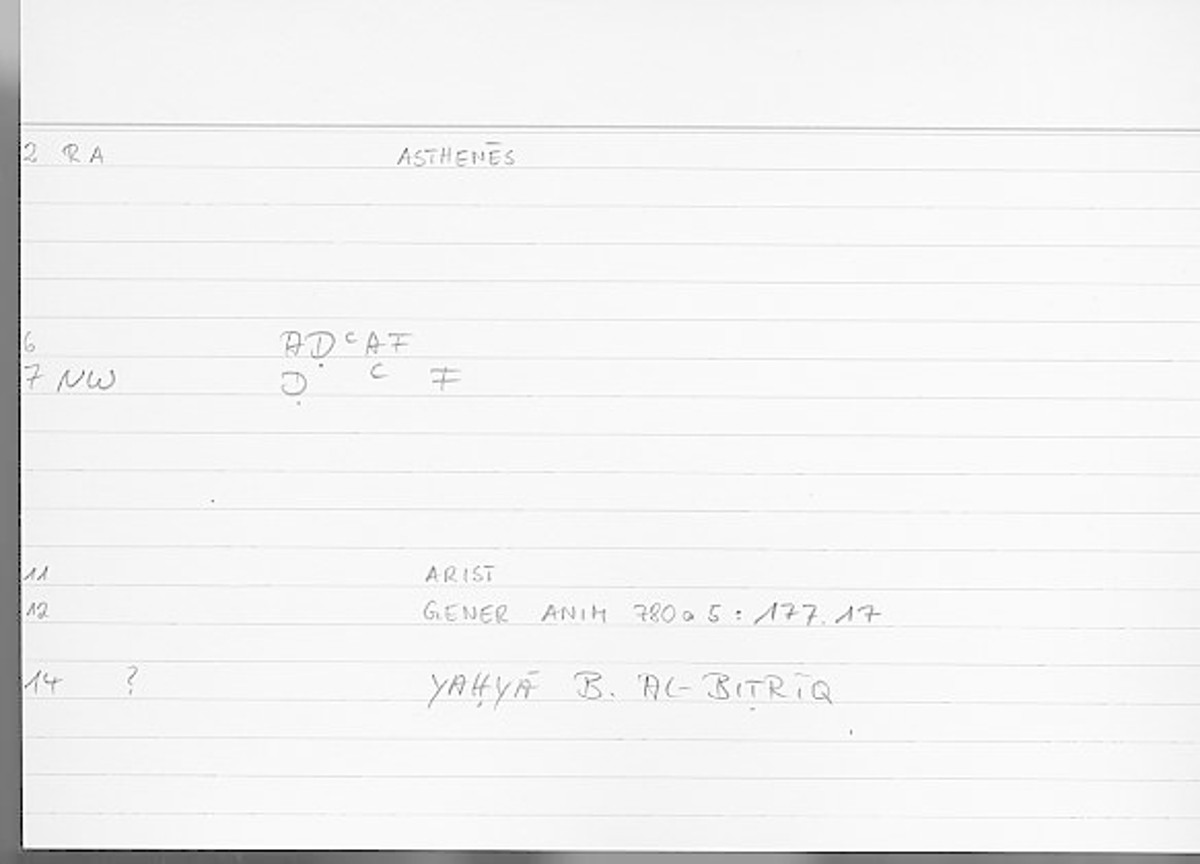 2 RA ASTHENĒS
6 AḌʿAF
7 NW Ḍ ʿ F
11 ARIST
12 GENER ANIM 780a5: 177.17
14 ? YAḤYĀ B. AL-BIṬRĪQ